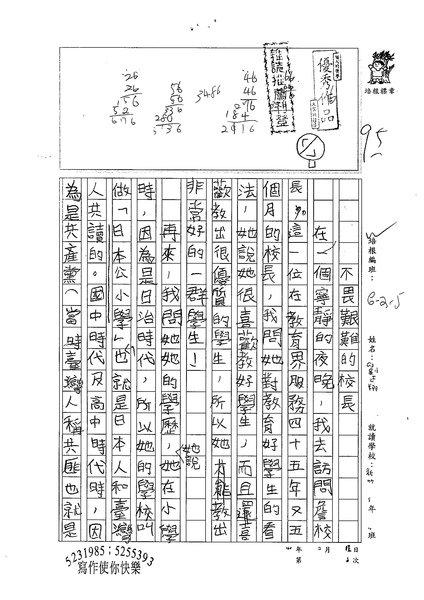 培根標章
優秀作品
95
26
26
156
52
676
56
56
336
280
3136
3486
46
46
276
184
2916
培根編班：6-2.5
姓名：
就讀學校：
年
班
不畏艱難的校長
在一個寧靜的夜晚，我去訪問詹校
長，這一位在教育界服務四十五年又五
個月的校長，我問她對教育好學生的看
法，她說她很喜歡教好學生，而且還喜
歡教出很優質的學生，所以她才能教出
非常好的一群學生！
再來，我問她她的學歷，她說她在小學
時，因為是日治時代，所以她的學校叫
做「日本公小學」也就是日本人和臺灣
人共讀的。國中時代及高中時代時，因
為是共產黨（當時臺灣人稱共匪也就是
年
月
日
第
次
5231985；5255393
寫作使你快樂